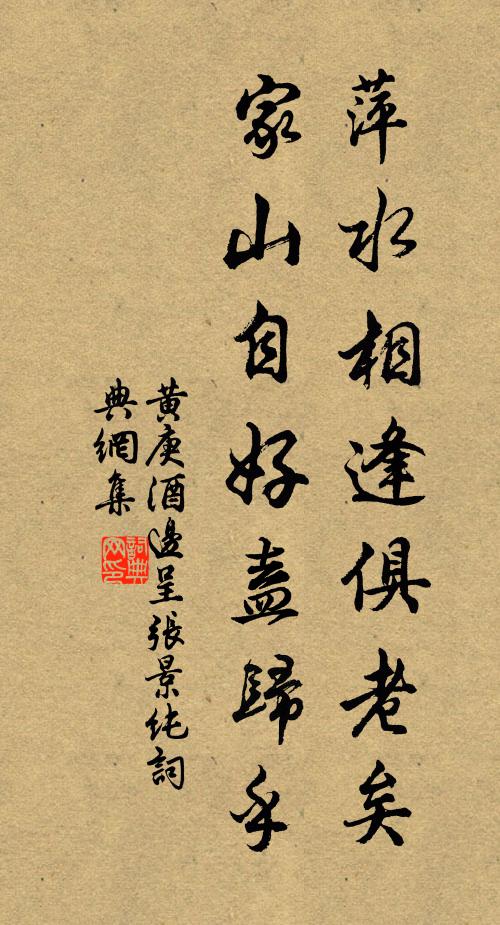 萍水相逢俱老矣
家山自好盍歸乎
黃庚酒邊呈張景純詞
典網集
詞典網印